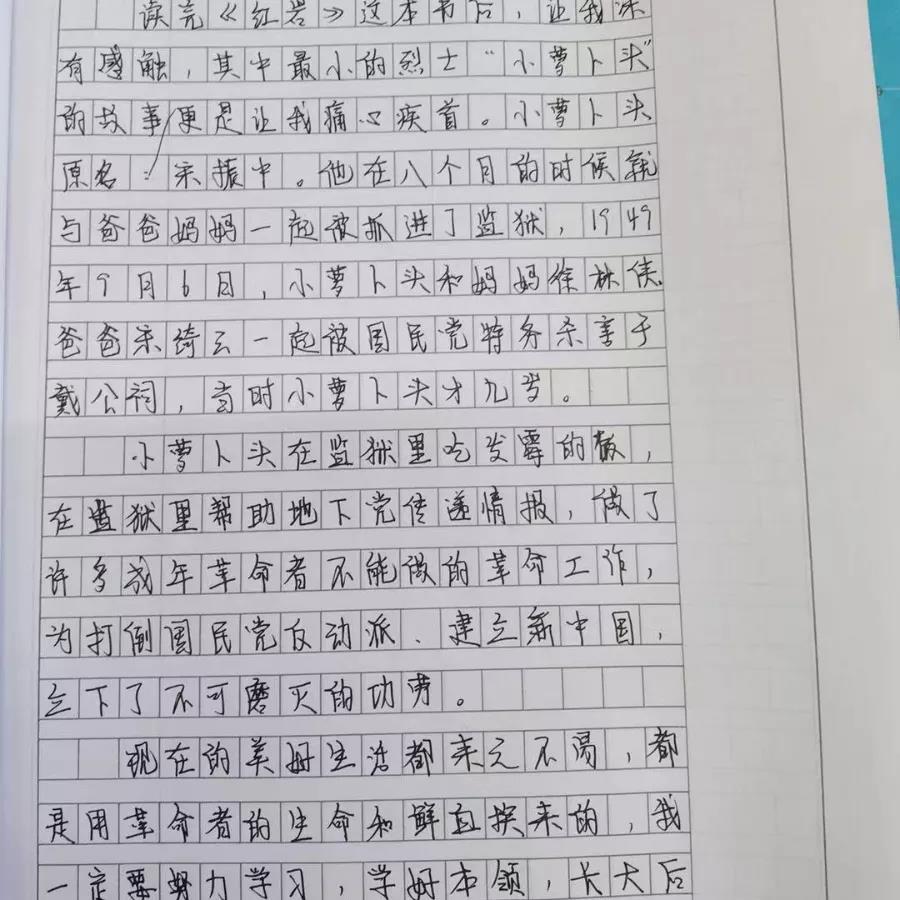 读完《红岩》这本书后，让我深
有感触，其中最小的烈士“小萝卜头”
的故事更是让我痛心疾首。小萝卜头
原名：宋振中。他在八个月的时候就
与爸爸妈妈一起被抓进了监狱，1949
年9月6日，小萝卜头和妈妈徐林侠
爸爸宋绮云一起被国民党特务杀害于
戴公祠，当时小萝卜头才九岁。
小萝卜头在监狱里吃发霉的饭，
在监狱里帮助地下党传递情报，做了
许多成年革命者不能做的革命工作，
为打倒国民党反动派、建立新中国，
立下了不可磨灭的功劳。
现在的美好生活都来之不易，都
是用革命者的生命和鲜血换来的，我
一定要努力学习，学好本领，长大后